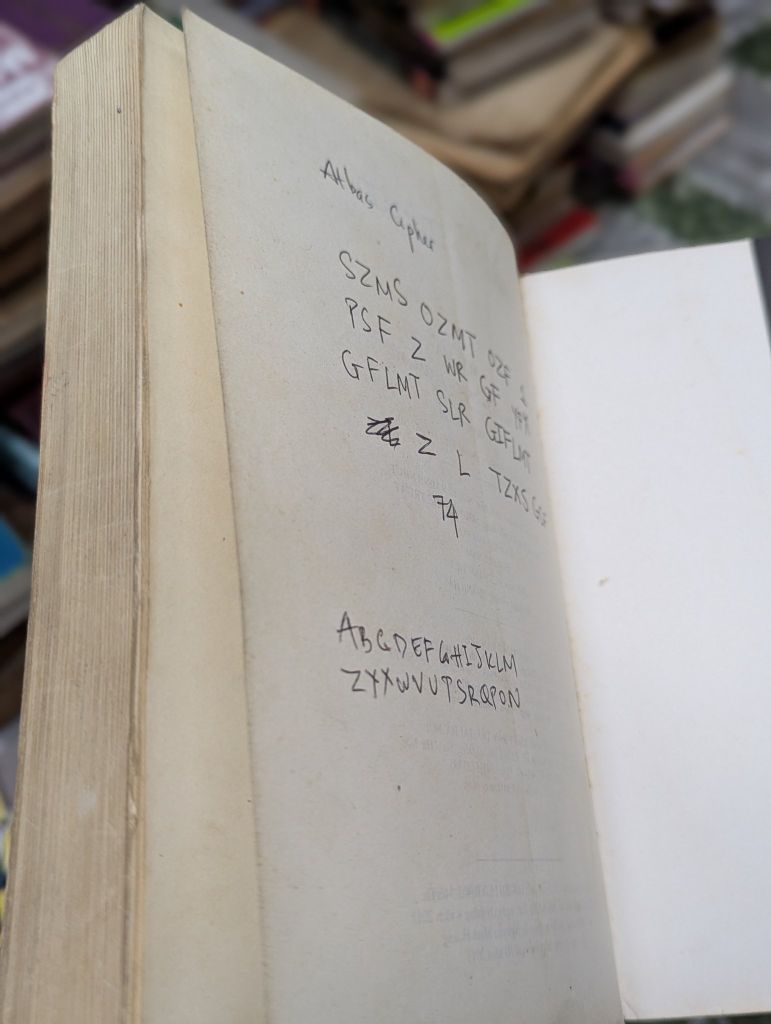 Atbas Cipher
SZMS OZMT OZF
PSF Z WR GF YFY
GFLMT SLR GIFLMT
Z L TZXS
74
ABCDEFGHIJKLM
ZYXWVUTSRQPON